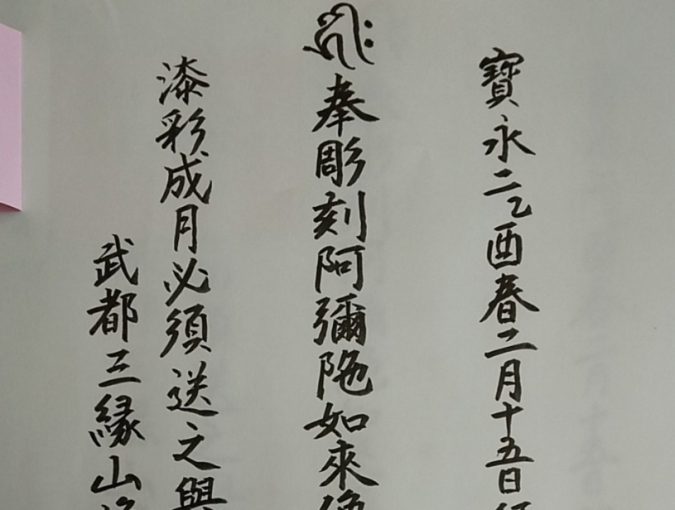 寶永二乙酉春二月十五日
奉彫刻阿彌陁如來
漆彩成月必須送之與
武都三縁山